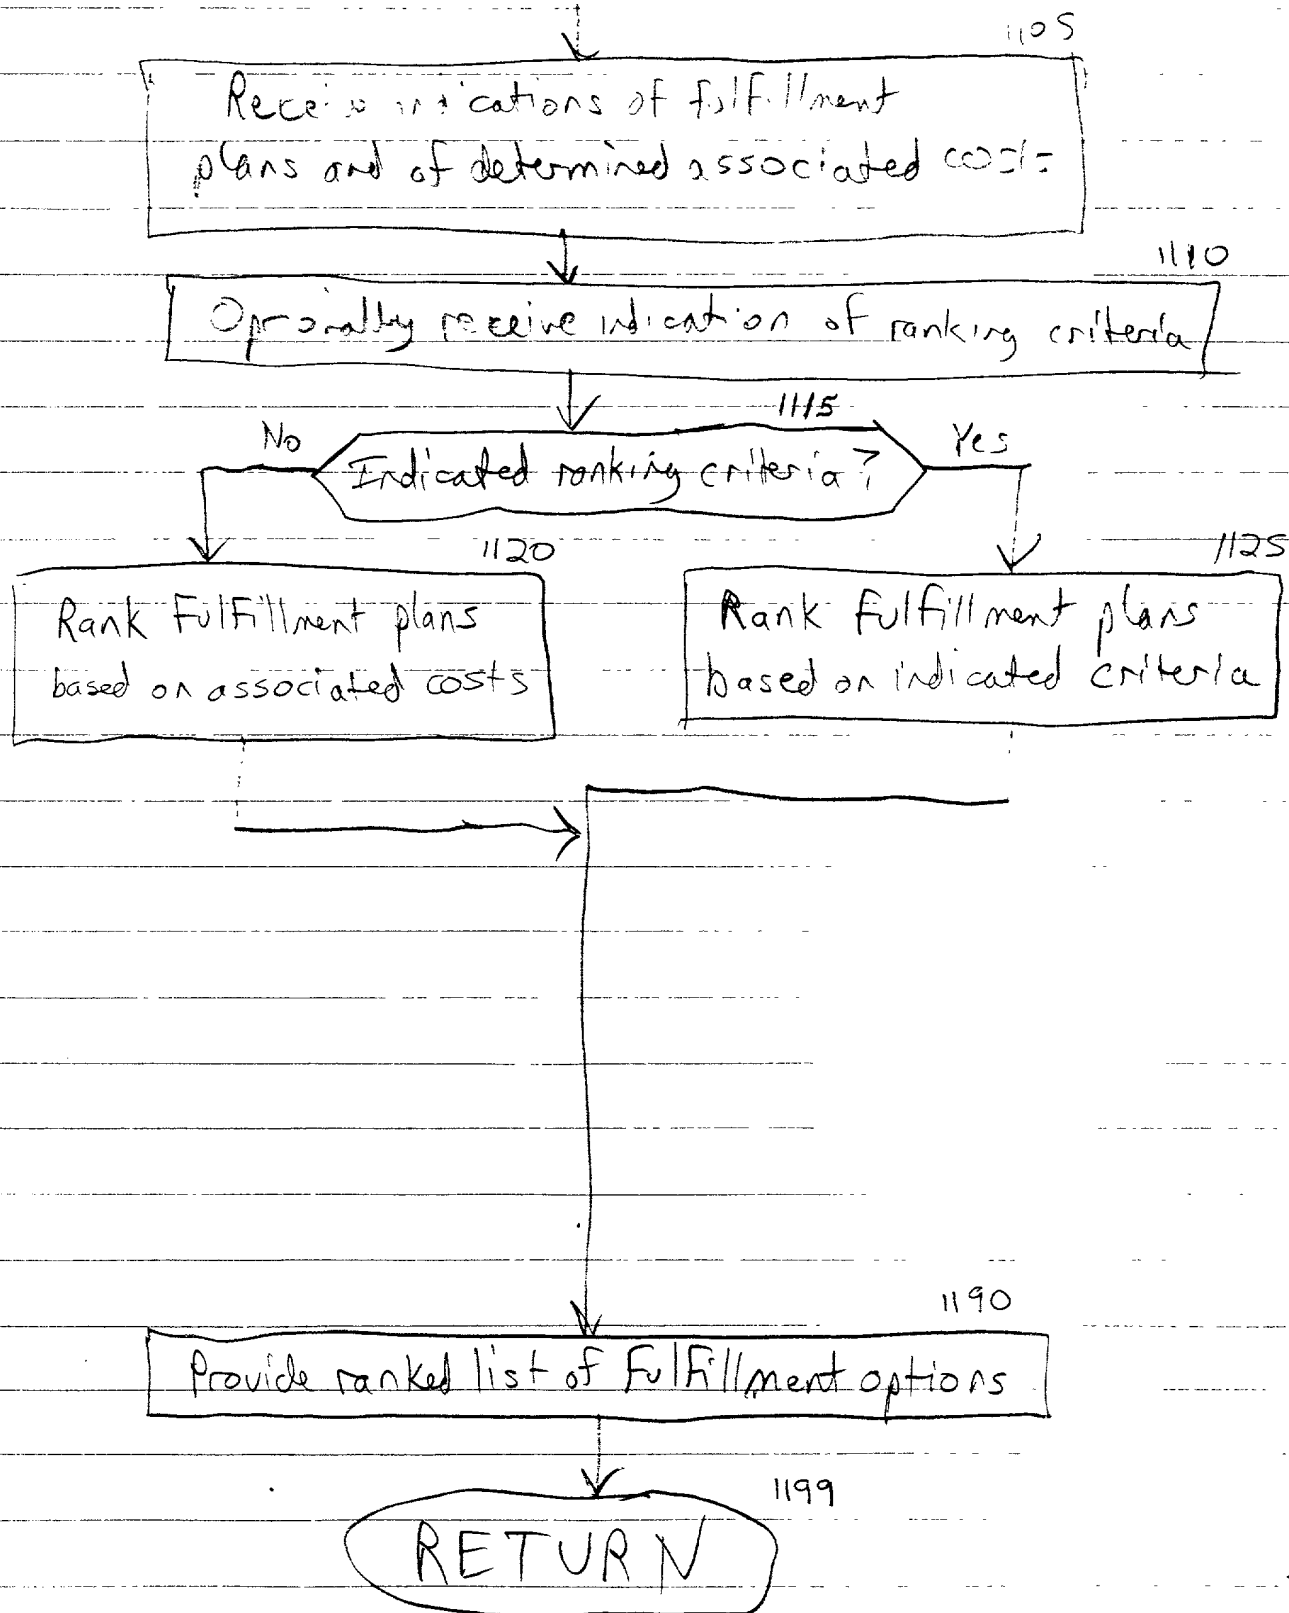 1105
Receive indications of fulfillment
plans and of determined associated costs
1110
Optionally receive indication of ranking criteria
1115
No
Yes
Indicated ranking criteria?
1120
1125
Rank Fulfillment plans
based on associated costs
Rank Fulfillment plans
based on indicated criteria
1190
Provide ranked list of Fulfillment options
1199
RETURN